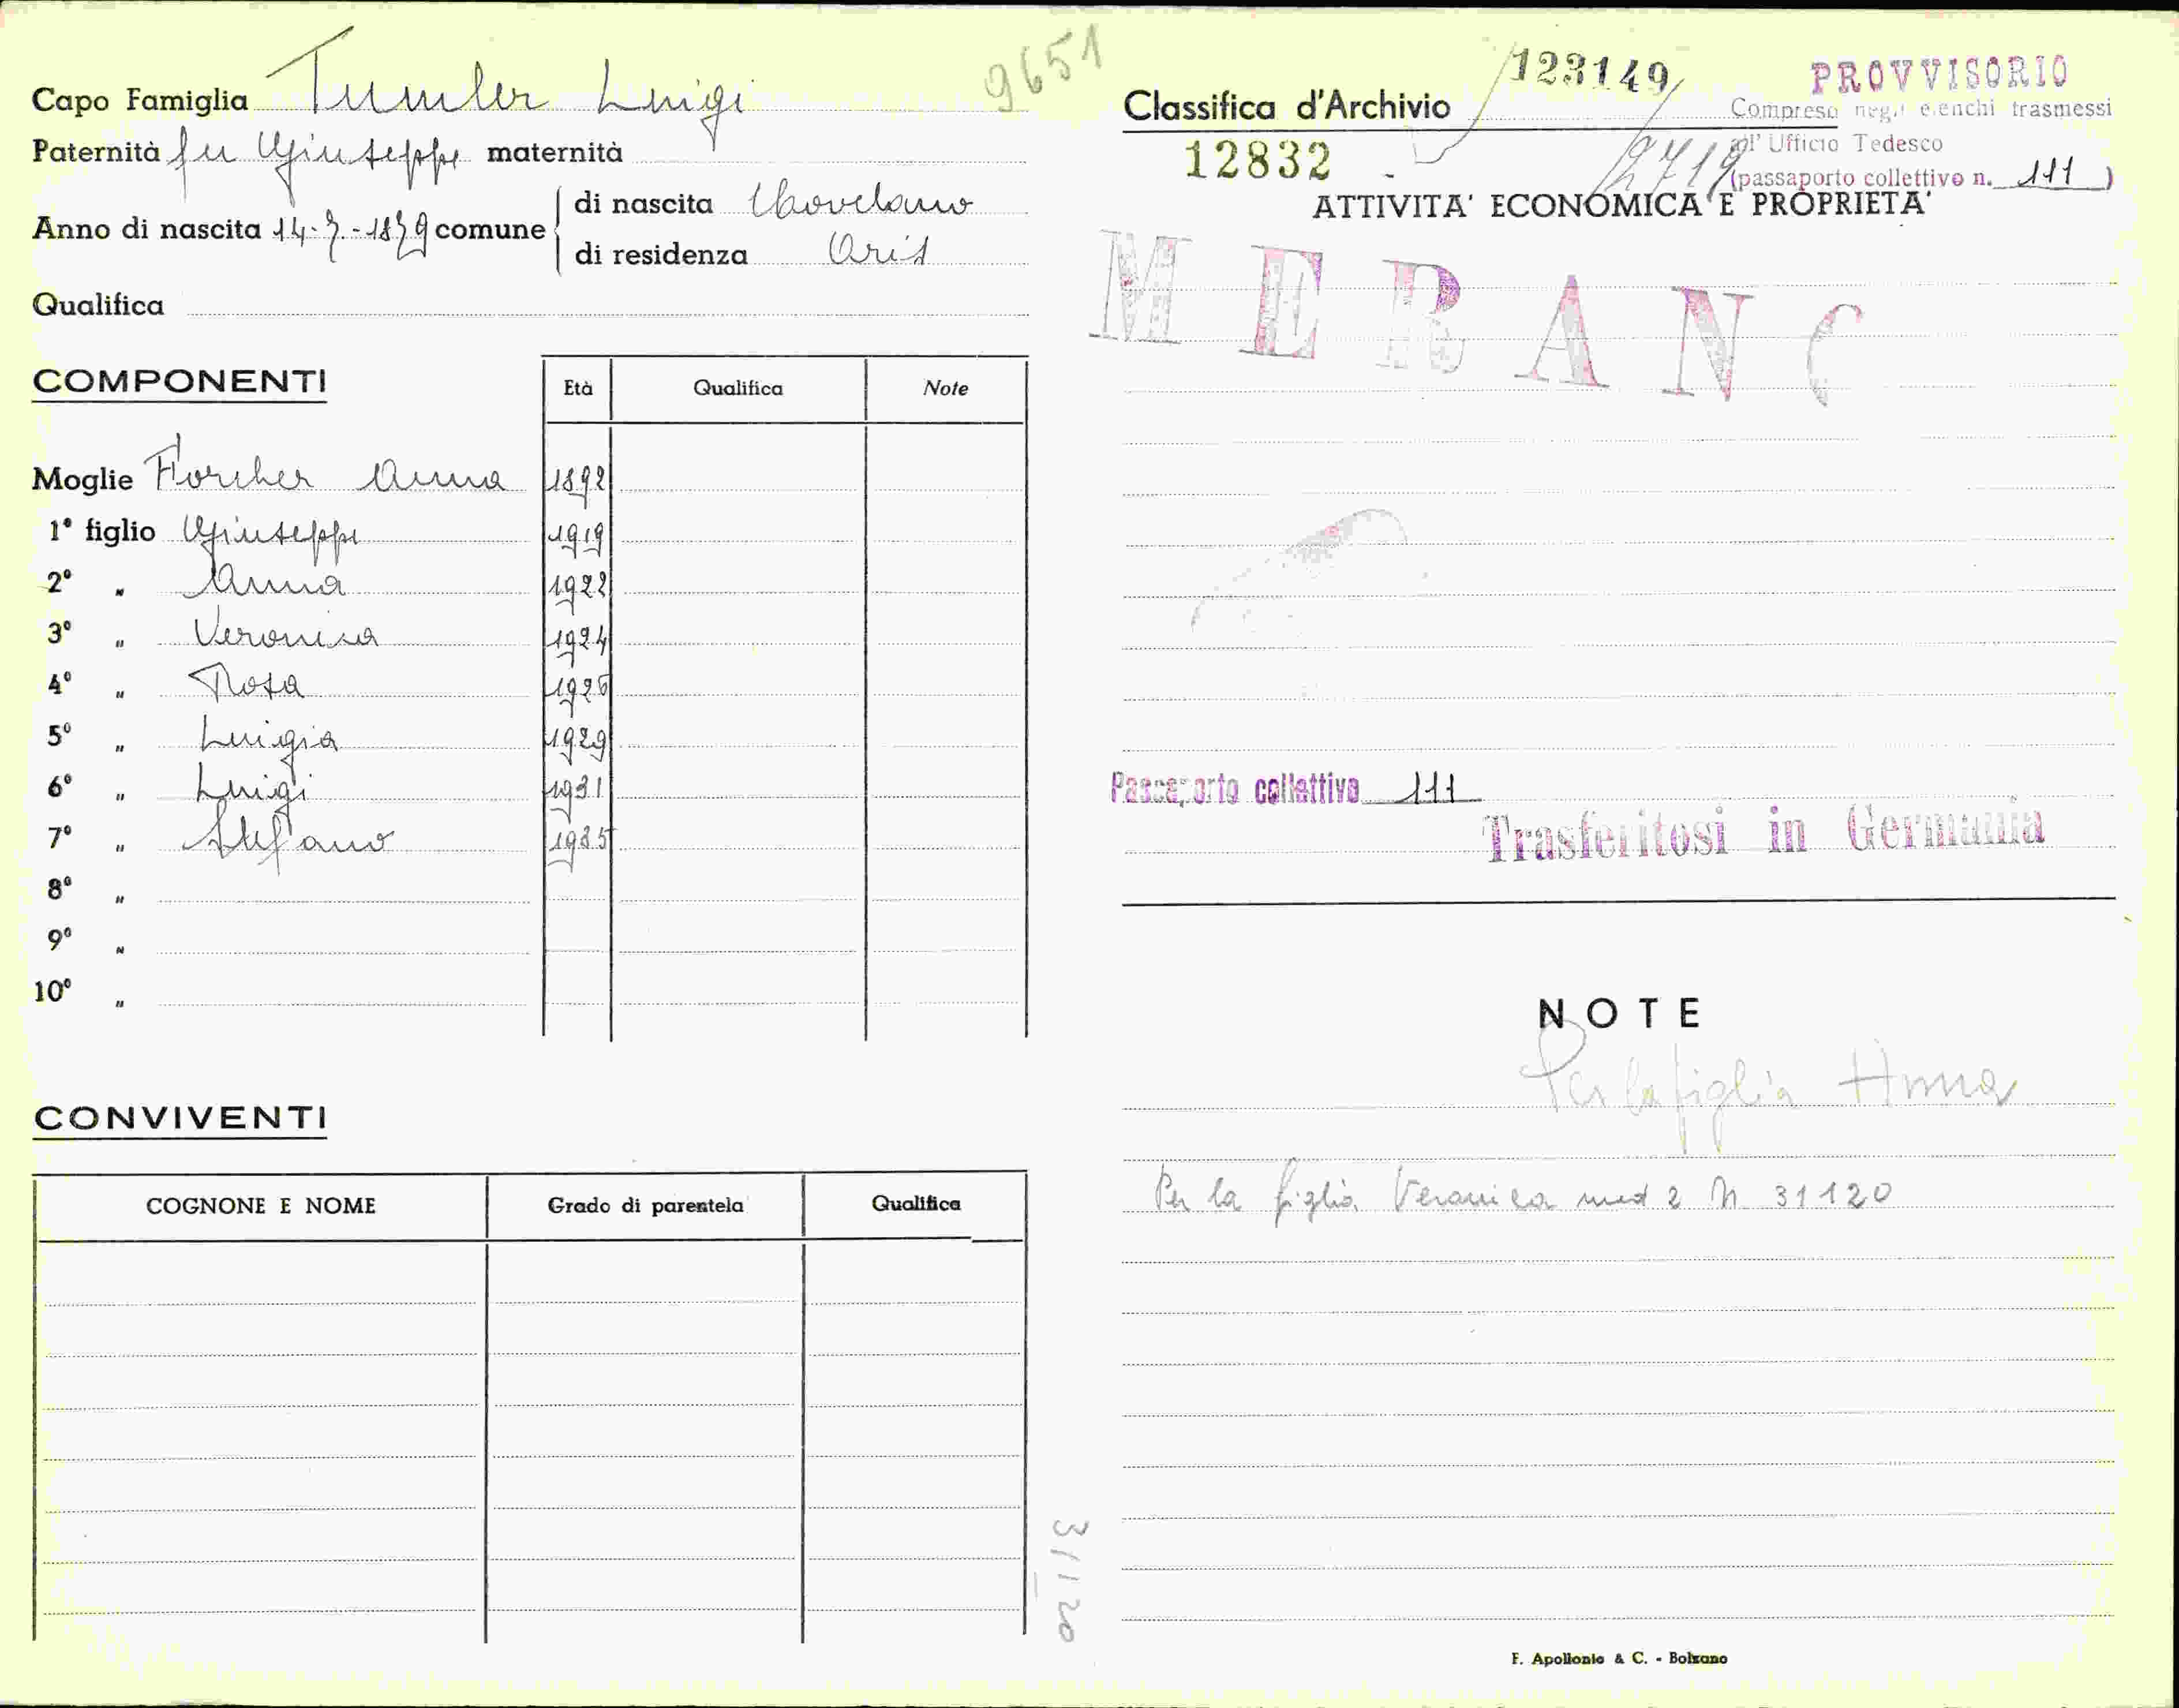 Capo Famiglia Tumler Luigi
9651
Paternità fu Giuseppe maternità
Anno di nascita 14-7-1879 comune
di nascita Covelano
di residenza Oris
Qualifica
COMPONENTI Età Qualifica Note
Moglie Horcher Anna 1892
1° figlio Giuseppe 1919
2° " Anna 1922
3° " Veronica 1924
4° " Rosa 1926
5° " Luigia 1929
6° " Luigi 1931
7° " Stefano 1935
8° "
9° "
10° "
CONVIVENTI
COGNONE E NOME Grado di parentela Qualifica
31120
Classifica d'Archivio 123149
12832 - 2719
PROVVISORIO
Compreso negli elenchi trasmessi
all' Ufficio Tedesco
(passaporto collettivo n. 111)
ATTIVITA' ECONOMICA E PROPRIETA'
MERANO
Passaporto collettivo 111
Trasferitosi in Germania
NOTE
Per la figlia Anna
Per la figlia Veronica mod 2 N 31120
F. Apollonio & C. - Bolzano